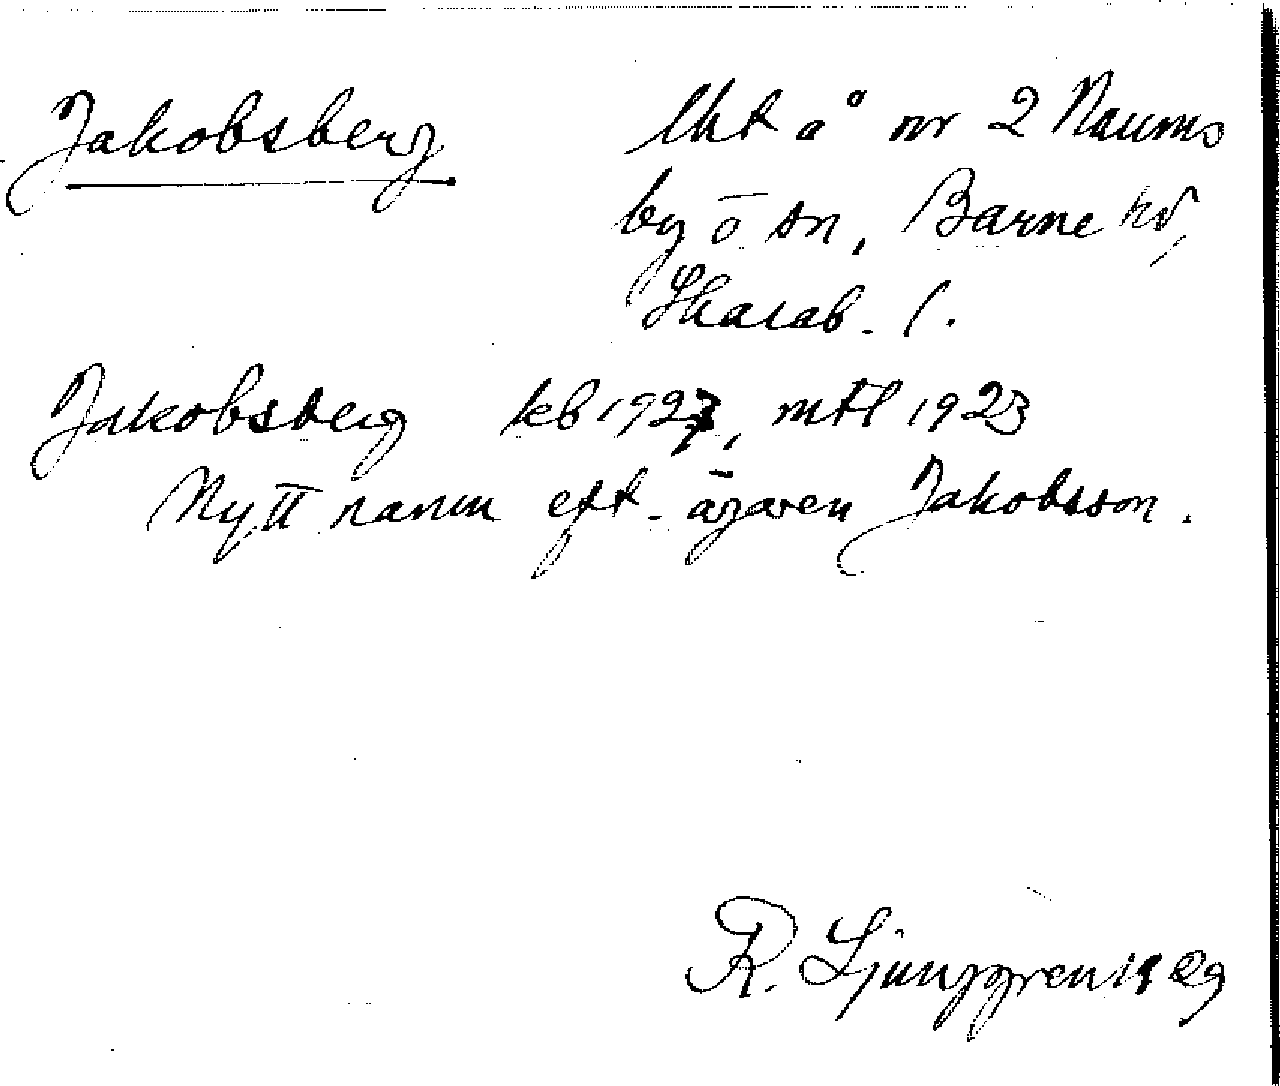 Jakobsberg lht å nr 2 Naums
by o sn, Barne hd,
Skarab. l.
Jakobsberg kb 1927, mtl 1923
Nytt namn eft. ägaren Jakobsson.
R. Ljunggren 1929